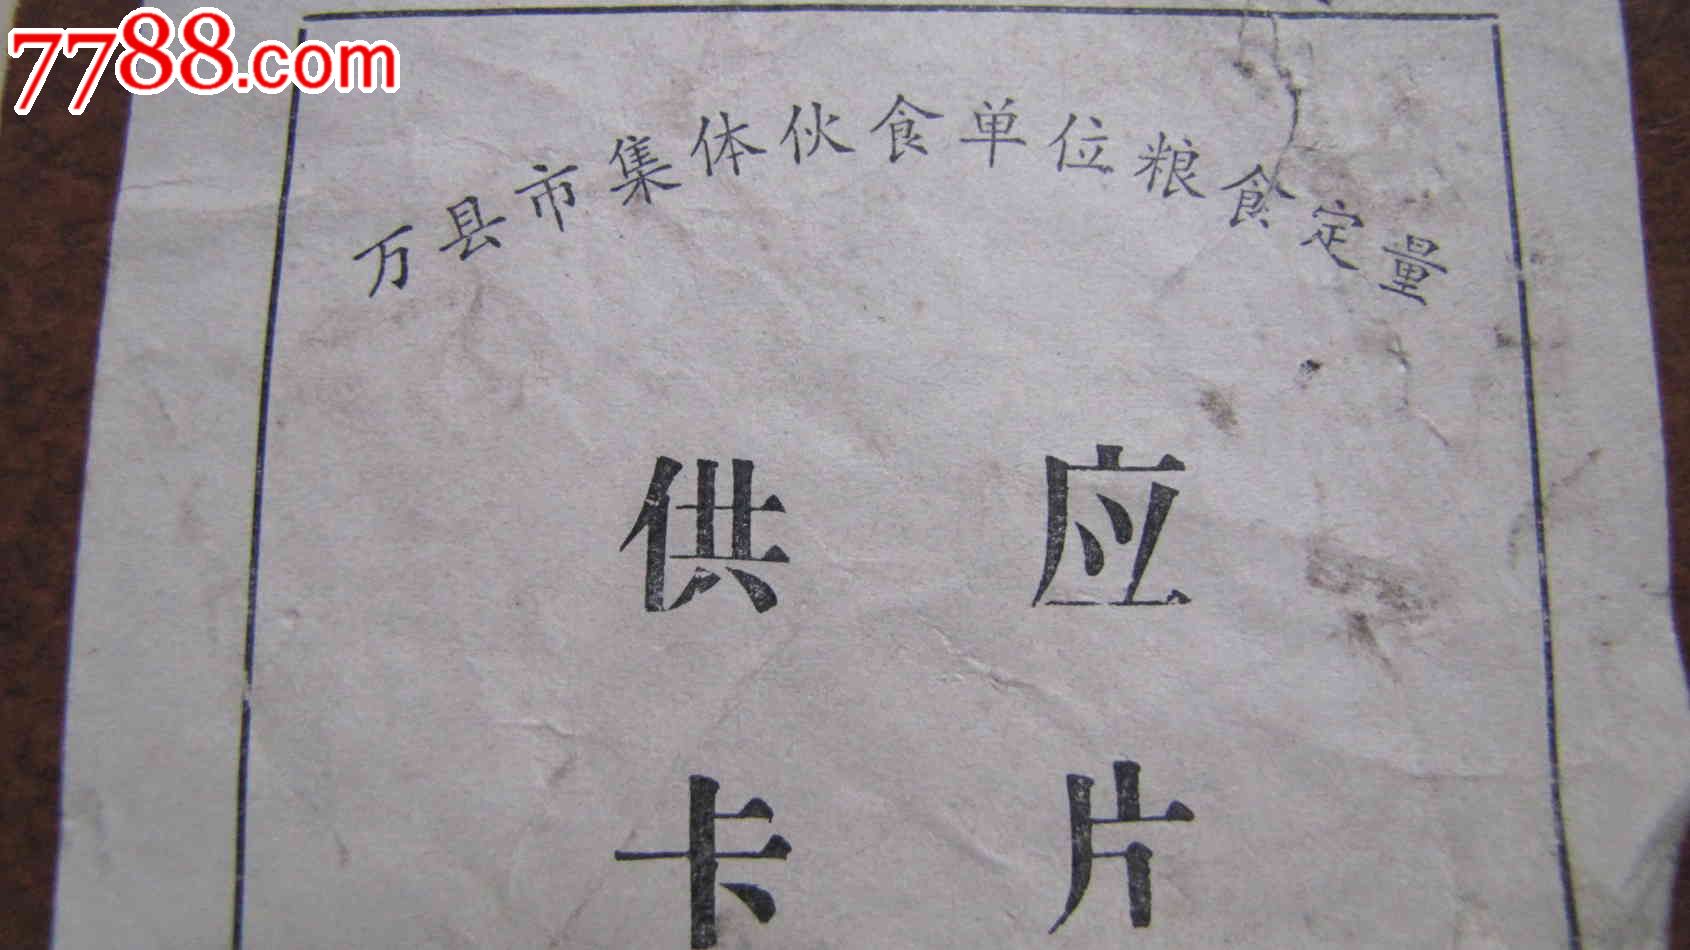 7788.com
万县市集体伙食单位粮食定量
供应
卡片